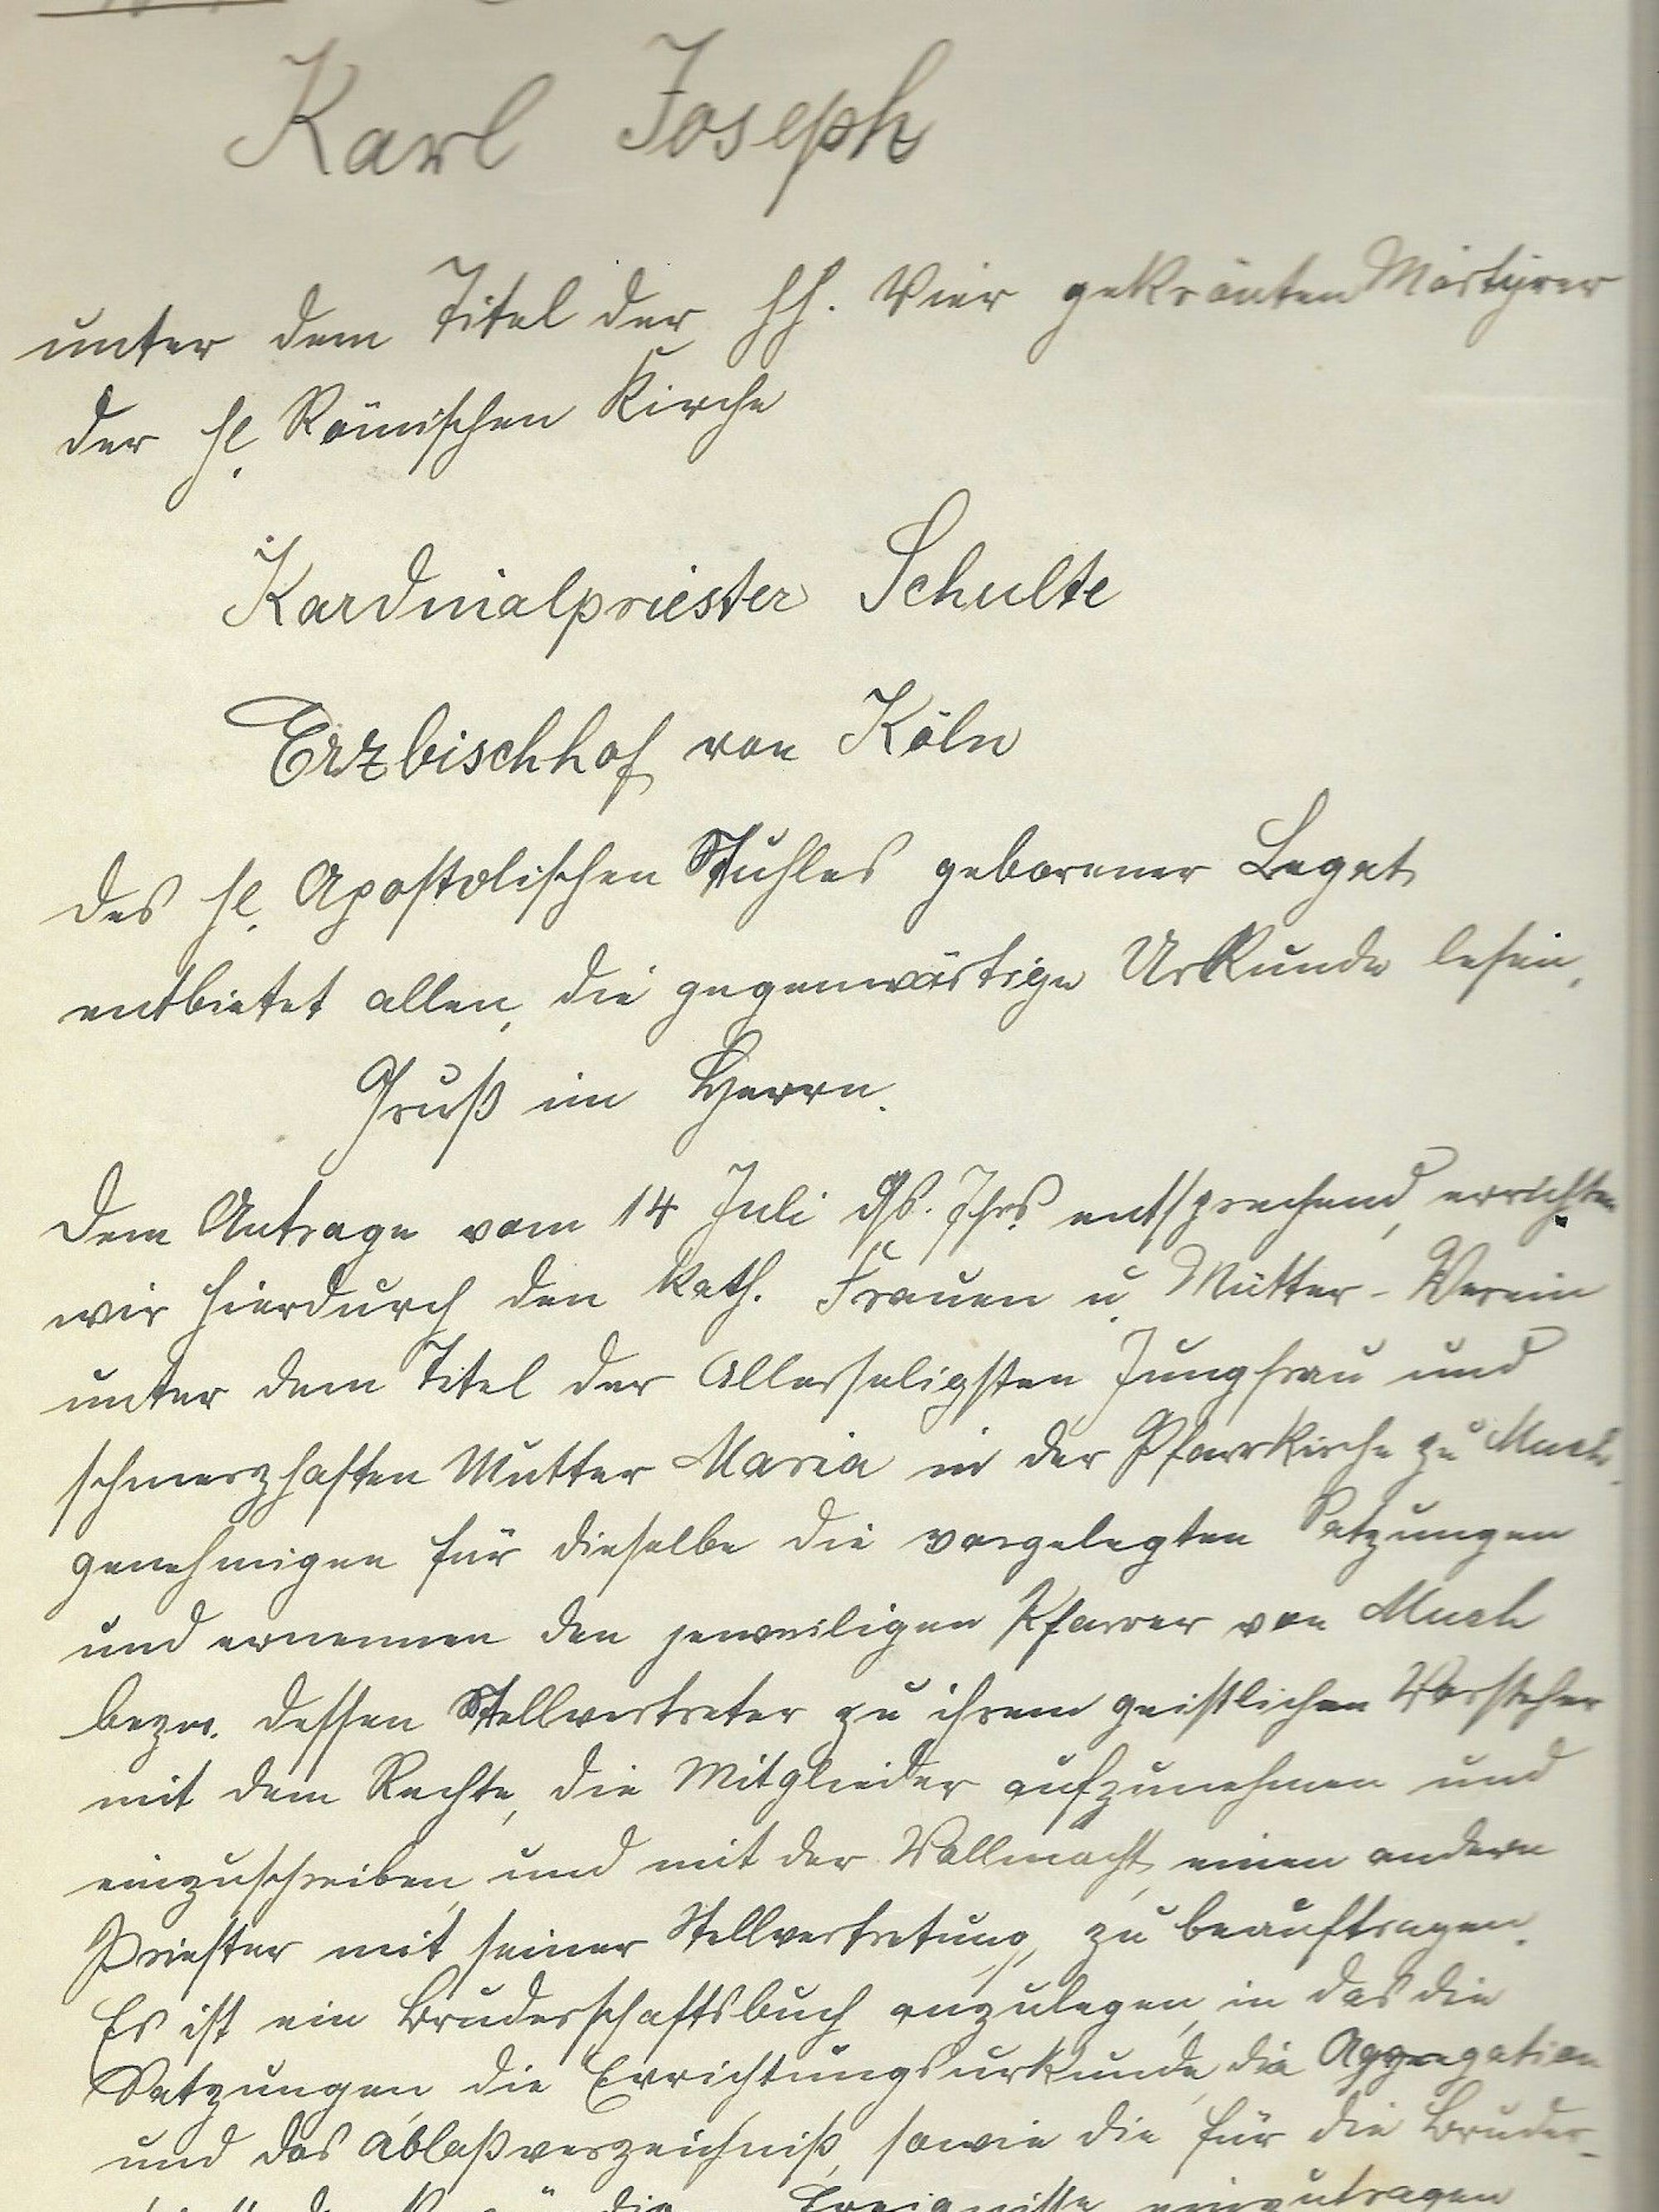 Karl Joseph
unter dem Titel der hh. Vier gekrönten Märtyrer
der hl. Römischen Kirche
Kardinalpriester Schulte
Erzbischhof von Köln
des hl. Apostolischen Stuhles geborener Legat
entbietet allen, die gegenwärtige Urkunde lesen,
Gruß im Herrn.
Dem Antrage vom 14 Juli ds. Jhrs entsprechend, errichten
wir hierdurch den kath. Frauen u. Mütter-Verein
unter dem Titel der Allerseligsten Jungfrau und
schmerzhaften Mutter Maria in der Pfarrkirche zu Much,
genehmigen für dieselbe die vorgelegten Satzungen
und ernennen den jeweiligen Pfarrer von Much
bezw. dessen Stellvertreter zu ihrem geistlichen Vorsteher
mit dem Rechte, die Mitglieder aufzunehmen und
einzuschreiben, und mit der Vollmacht, einen andern
Priester mit seiner Stellvertretung, zu beauftragen.
Es ist ein Bruderschaftsbuch anzulegen, in das die
Satzungen, die Errichtungsurkunde, die Aggregation
und das Ablaßverzeichniß, sowie die für die Bruder-
die Ereignisse einzutragen